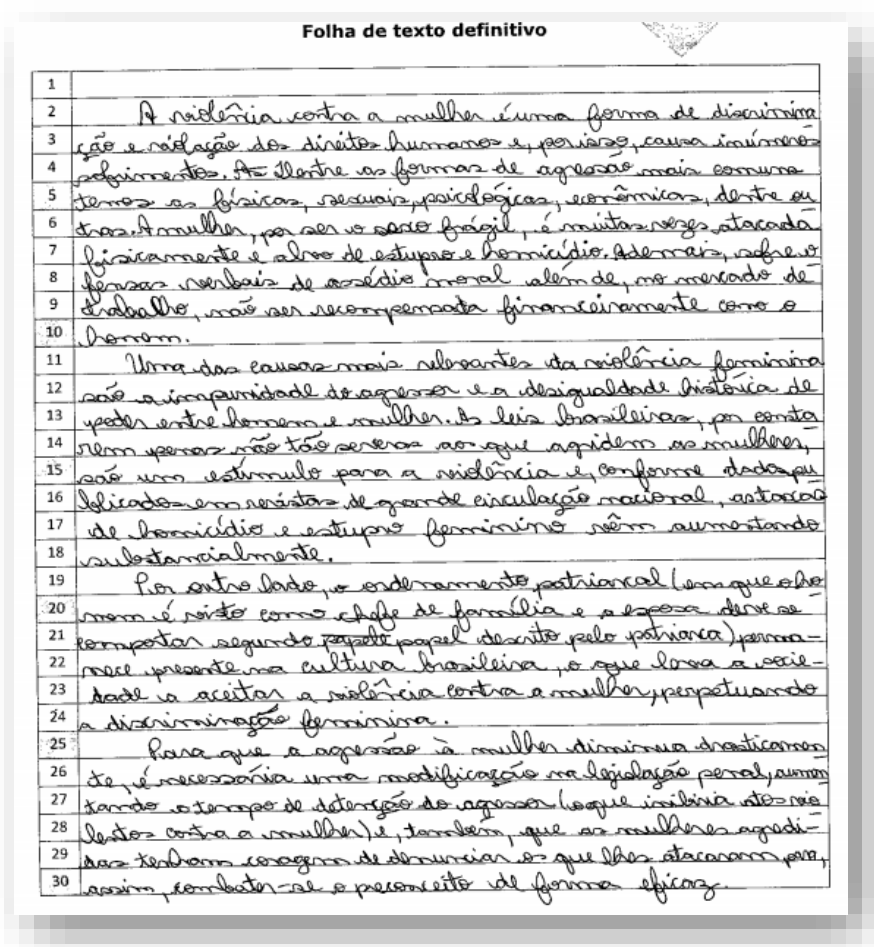 Folha de texto definitivo
1
2 A violência contra a mulher é uma forma de discrimina
3 ção e violação dos direitos humanos e, por isso, causa inúmeros
4 sofrimentos. As Dentre as formas de agressão mais comuns
5 temos as físicas, sexuais, psicológicas, econômicas, dentre ou
6 tras. A mulher, por ser o sexo frágil, é muitas vezes atacada
7 fisicamente e alvo de estupro e homicídio. Ademais, sofre o
8 fensas verbais de assédio moral além de, no mercado de
9 trabalho, não ser recompensada financeiramente como o
10 homem.
11 Uma das causas mais relevantes da violência feminina
12 são a impunidade do agressor e a desigualdade histórica de
13 poder entre homem e mulher. As leis brasileiras, por consta
14 rem penas não tão severas aos que agridem as mulheres,
15 são um estímulo para a violência e, conforme dados pu
16 blicados em revistas de grande circulação nacional, as taxas
17 de homicídio e estupro feminino vêm aumentando
18 substancialmente.
19 Por outro lado, o ordenamento patriarcal (em que o ho
20 mem é visto como chefe de família e a esposa deve se
21 comportar segundo papel papel descrito pelo patriarca) perma-
22 nece presente na cultura brasileira, o que leva a socie-
23 dade a aceitar a violência contra a mulher, perpetuando
24 a discriminação feminina.
25 Para que a agressão à mulher diminua drasticamen
26 te, é necessária uma modificação na legislação penal, aumen
27 tando o tempo de detenção do agressor (o que inibiria atos vio
28 lentos contra a mulher) e, também, que as mulheres agredi-
29 das tenham coragem de denunciar os que lhes atacaram para,
30 assim, combater-se o preconceito de forma eficaz.